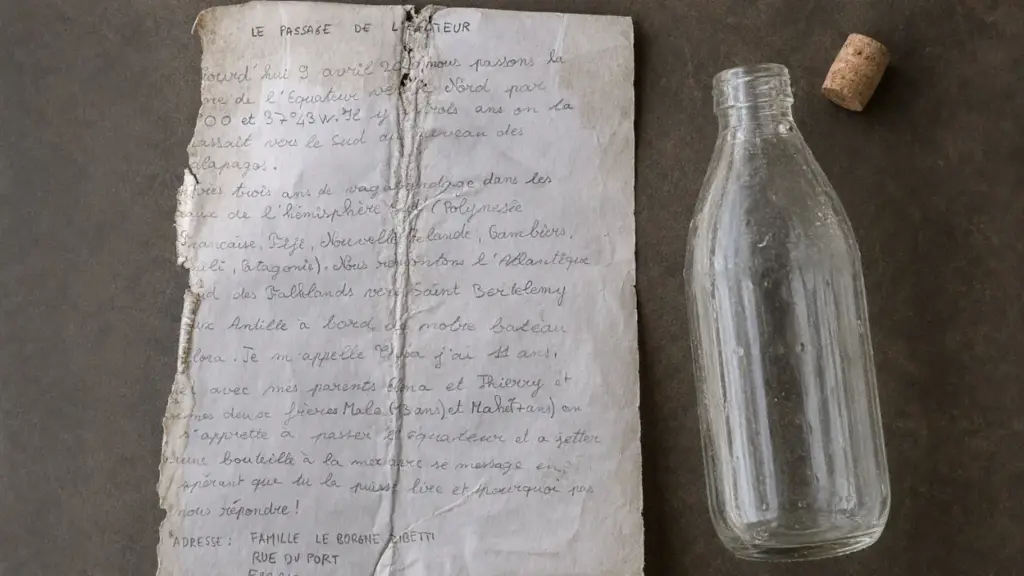 LE PASSAGE DE L'
ourd'hui 9 avril nous passons la
de l'Equateur Nord par
00 et 37°43W. Il y ans on la
assait vers le Sud du niveau des
alapagos.
trois ans de vagabondage dans les
de l'hémisphère (Polynesie
rançaise, Fidji, Nouvelle Zelande, Gambiers,
, Patagonie). Nous remontons l'Atlantique
des Falklands vers Saint Bertelemy
Antille à bord de notre bateau
lora. Je m'appelle j'ai 11 ans,
avec mes parents et Thierry et
mes deux frères Malo et on
s'apprette a passer l'Equateur et a jetter
une bouteille à la mer avec se message en
spérant que tu la puisse lire et pourquoi pas
nous répondre!
ADRESSE : FAMILLE LE BORGNE
RUE DU PORT